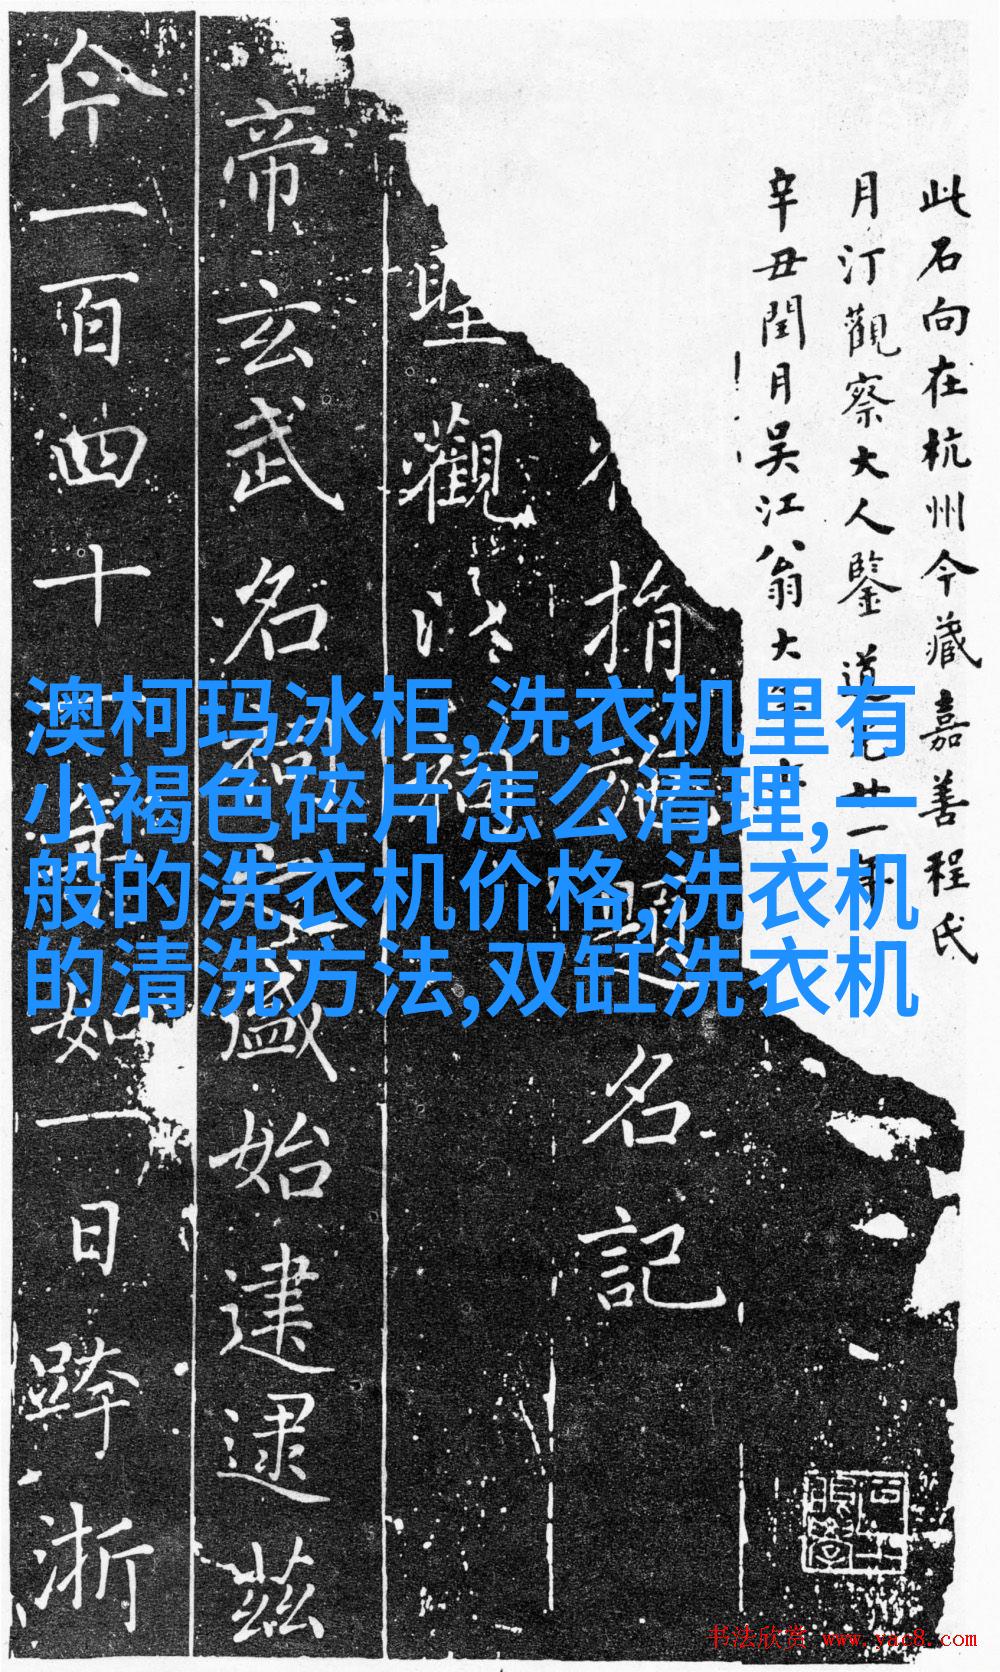 此石向在杭州今藏嘉善程氏
月汀觀察大人鑒 道光廿一年
辛丑閏月吳江翁大
捐題名記
聖觀
帝玄武名祠盛始建逮茲
今一百四十如一日跨浙
澳柯玛冰柜,洗衣机里有
小褐色碎片怎么清理,一
般的洗衣机价格,洗衣机
的清洗方法,双缸洗衣机
书法欣赏 www.yac8.com